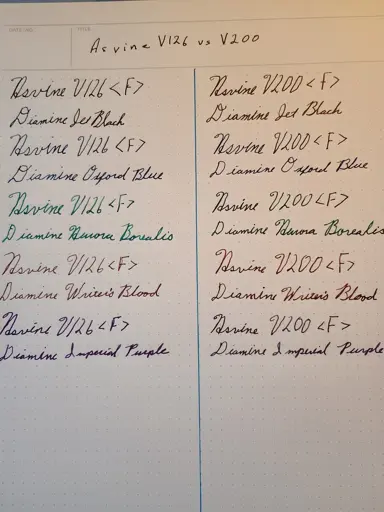 Asvine V126 vs V200
Asvine V126 <F>
Diamine Jet Black
Asvine V126 <F>
Diamine Oxford Blue
Asvine V126 <F>
Diamine Aurora Borealis
Asvine V126 <F>
Diamine Writer's Blood
Asvine V126 <F>
Diamine Imperial Purple
Asvine V200 <F>
Diamine Jet Black
Asvine V200 <F>
Diamine Oxford Blue
Asvine V200 <F>
Diamine Aurora Borealis
Asvine V200 <F>
Diamine Writer's Blood
Asvine V200 <F>
Diamine Imperial Purple